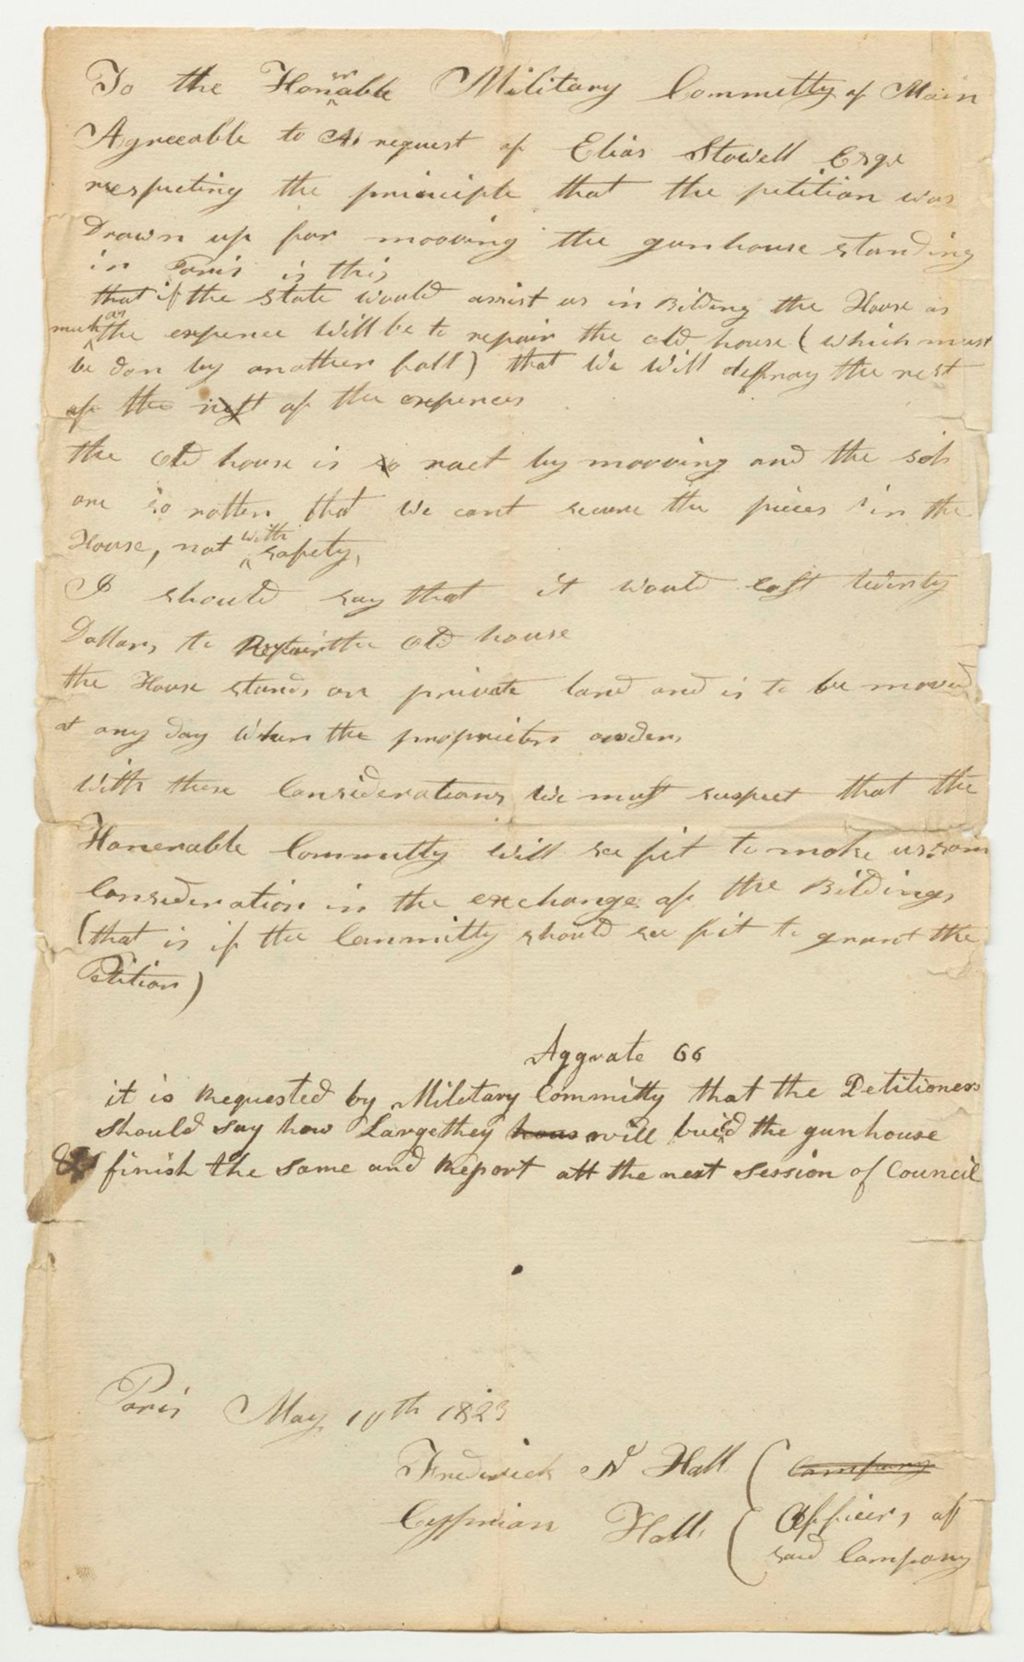 To the Honorable Military Committy of Main
Agreeable to A request of Elias Stowell Esqr
respecting the principle that the petition was
Drawn up for mooving the gunhouse standing
in Paris is this,
that if the State would assist us in Bilding the House as
much as the expence Will be to repair the old house (which must
be don by another fall) that We Will defray the rest
of the rest of the expences
the Old house is so ract by mooving and the sils
are so rotten that We cant secure the pieces in the
House, not with safety,
I should say that it would cost twenty
Dollars to Repair the Old house
the House stands on private land and is to be moved
at any day When the proprietors orders
With these Considerations We must suspect that the
Honerable Committy Will see fit to make us som
Consideration in the exchange of the Bildings
(that is if the Committy should see fit to grant the
Petition)
Aggrate 66
it is Requested by Military Committy that the Petitioners
Should Say how Large they hous will buied the gunhouse
& finish the Same and Report att the next Session of Council
Paris May 10th 1823
Frederick N Hall ( Company
Cyprian Hall ( Officers of
said Company